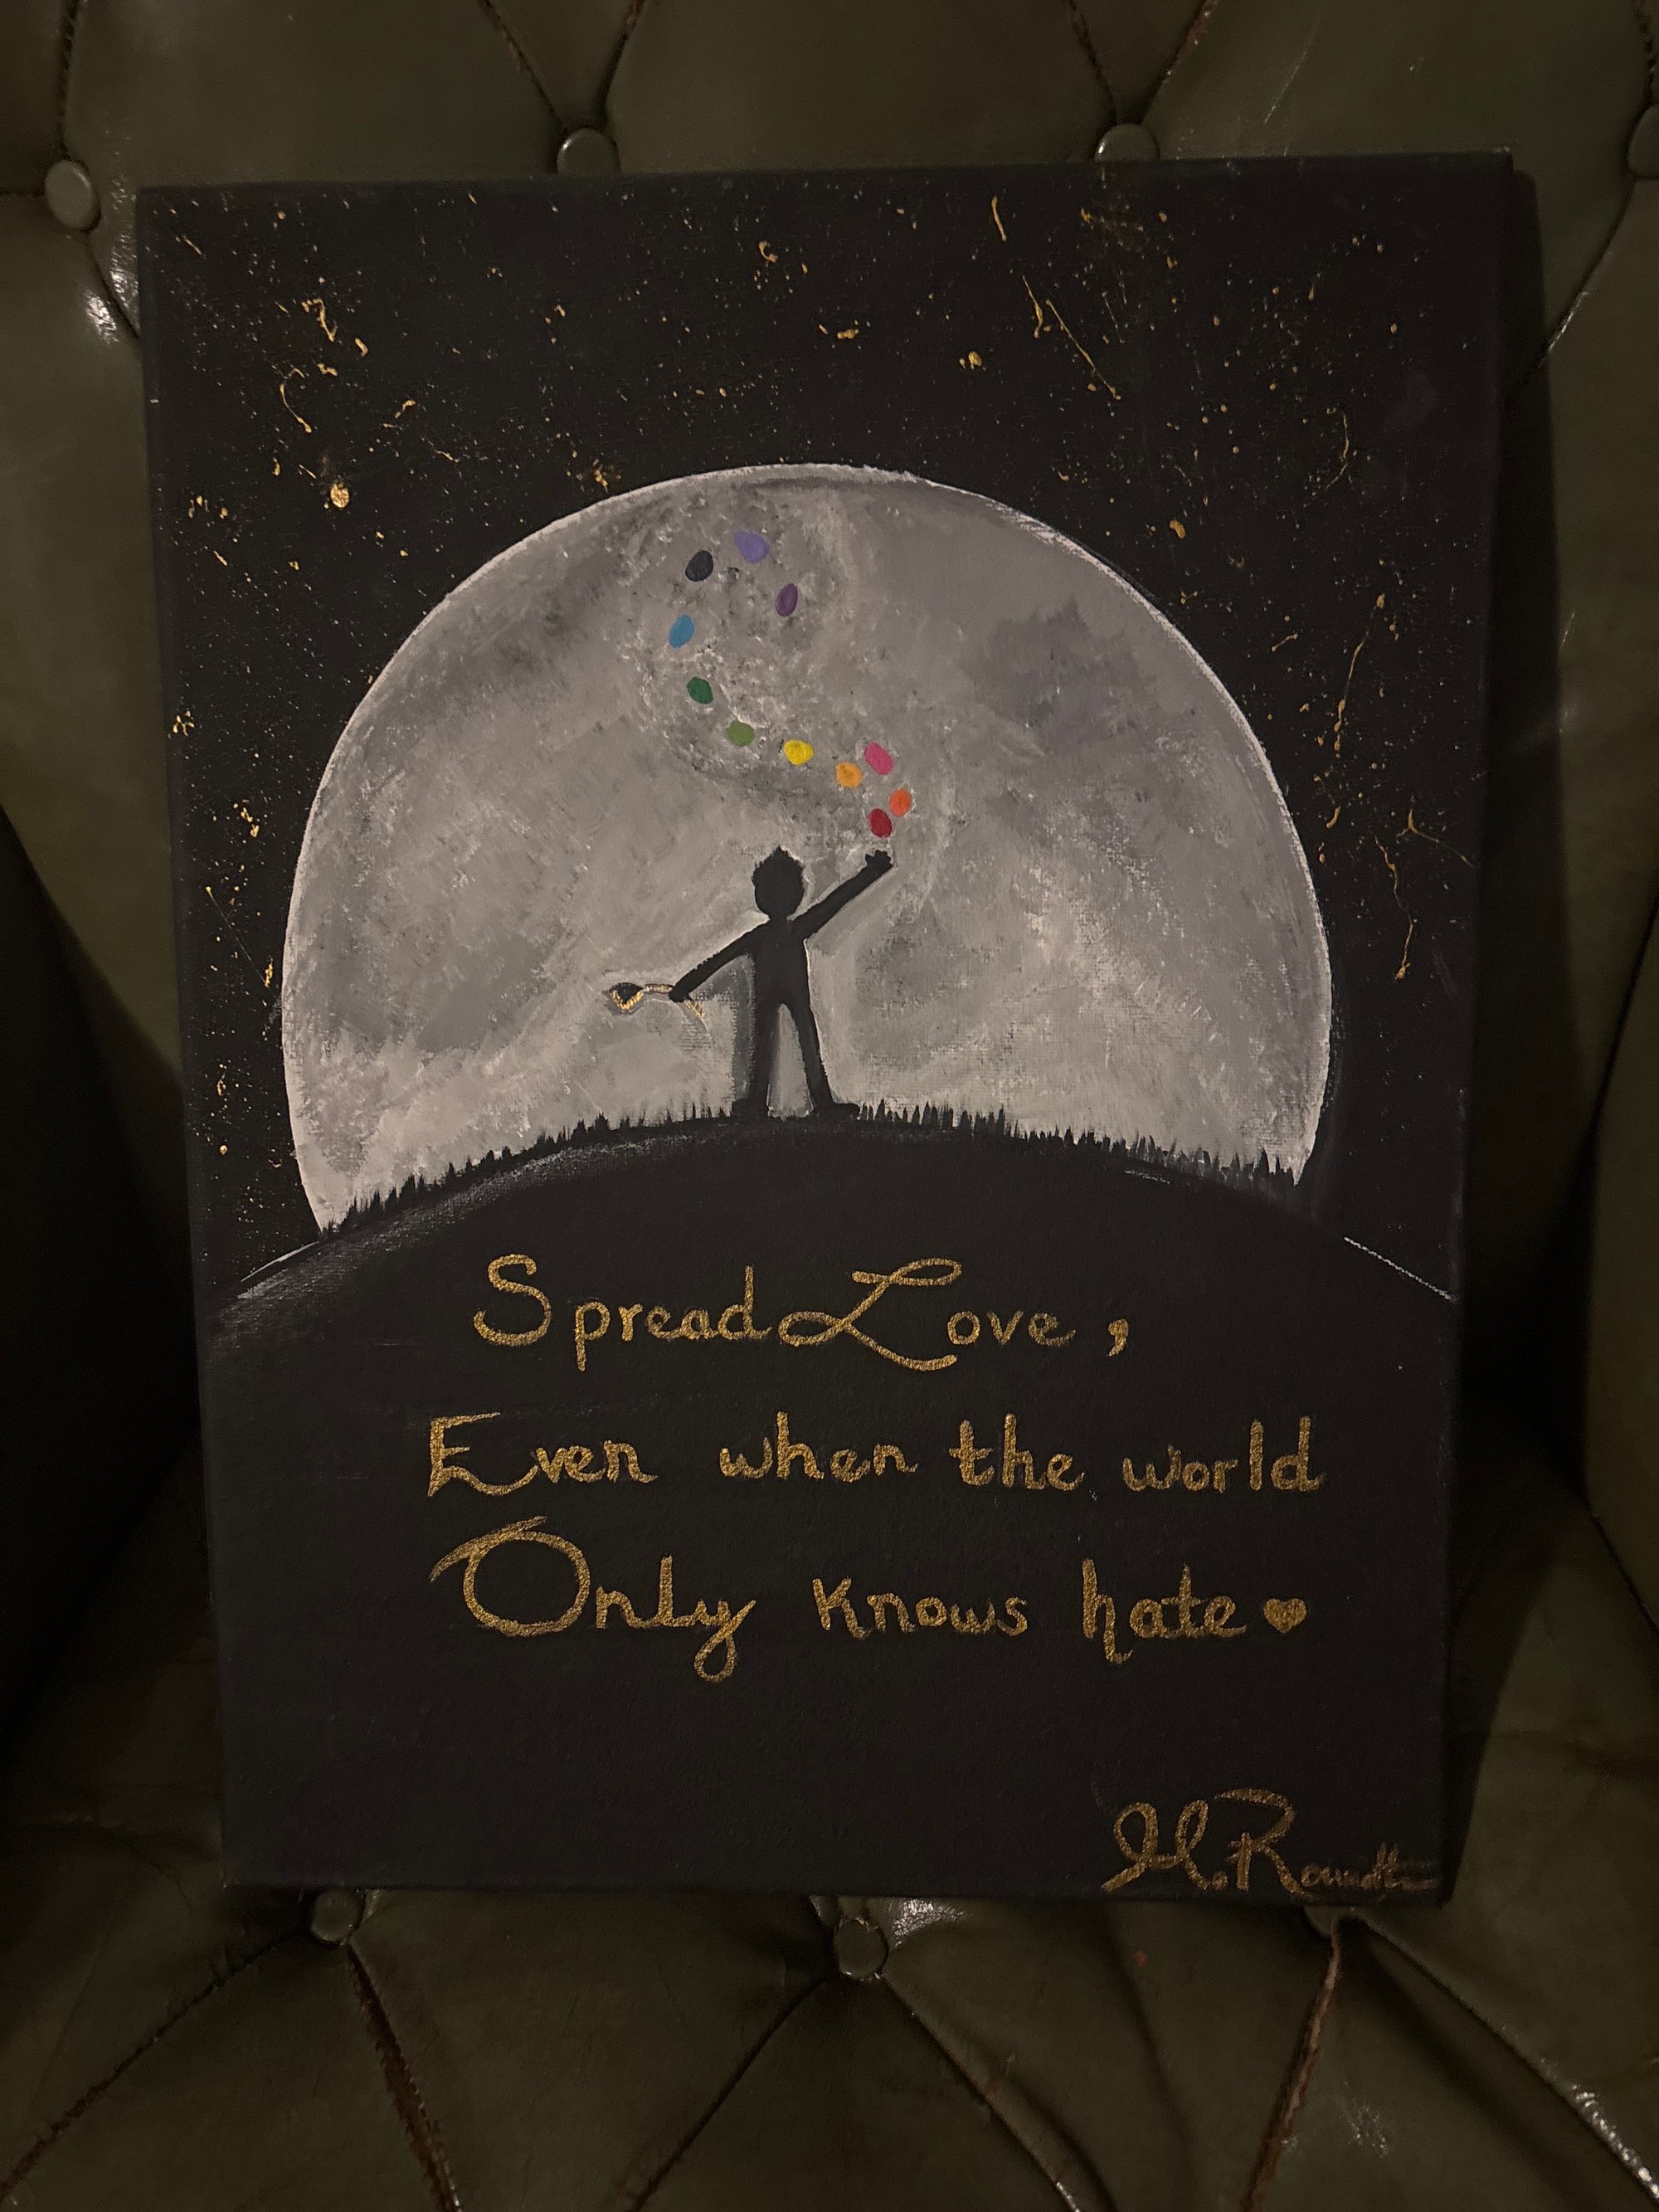 Spread Love,
Even when the world
Only knows hate♥